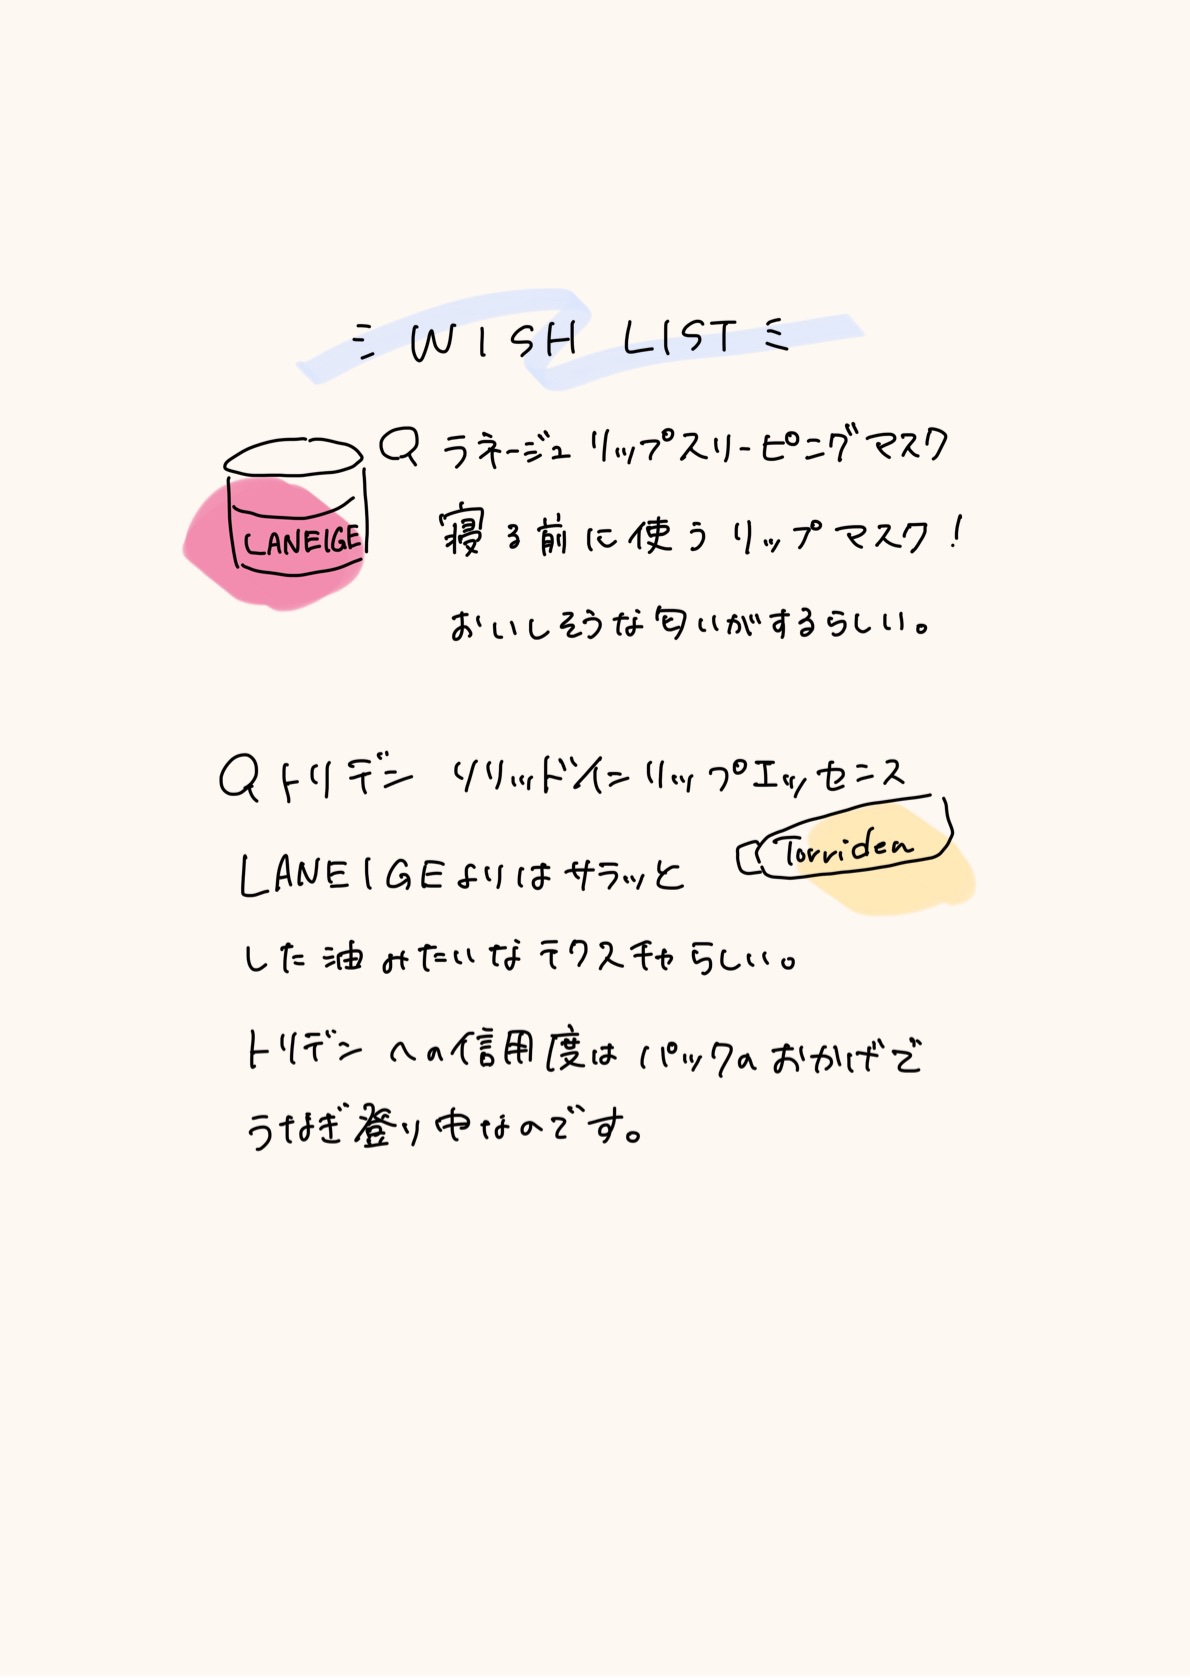 WISH LIST
Q ラネージュ リップスリーピングマスク
LANEIGE
寝る前に使うリップマスク!
おいしそうな匂いがするらしい。
Qトリデン ソリッドイン リップエッセンス
Torriden
LANEIGEよりはサラッと
した油みたいなテクスチャらしい。
トリデンへの信用度はパックのおかげで
うなぎ登り中なのです。